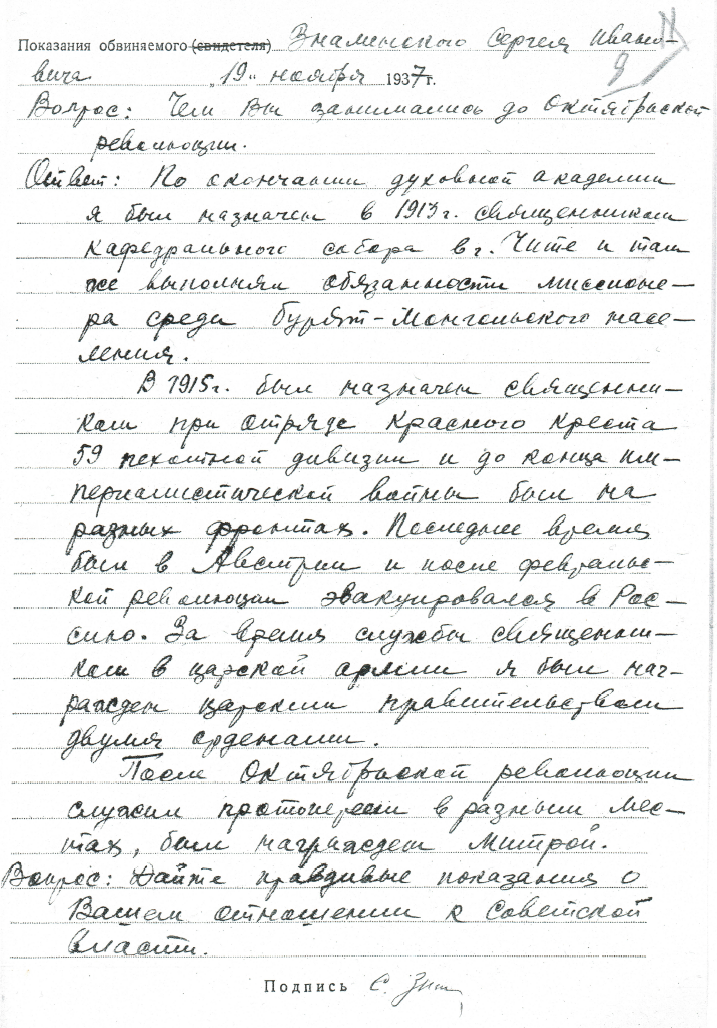 Показания обвиняемого (свидетеля) Знаменского Сергея Ивано-
вича „19" ноября 1937 г.
9
Вопрос: Чем Вы занимались до Октябрьской
революции.
Ответ: По окончании духовной академии
я был назначен в 1913 г. священником
Кафедрального собора в г. Чите и там
же выполнял обязанности миссионе-
ра среди бурят-монгольского насе-
ления.
В 1915 г. был назначен священни-
ком при отряде Красного Креста
59 пехотной дивизии и до конца им-
периалистической войны был на
разных фронтах. Последнее время
был в Австрии и после февральс-
кой революции эвакуировался в Рос-
сию. За время службы священни-
ком в царской армии я был наг-
ражден царским правительством
двумя орденами.
После Октябрьской революции
служил протоиереем в разных мес-
тах, был награжден митрой.
Вопрос: Дайте правдивые показания о
Вашем отношении к Советской
власти.
Подпись С. Зн